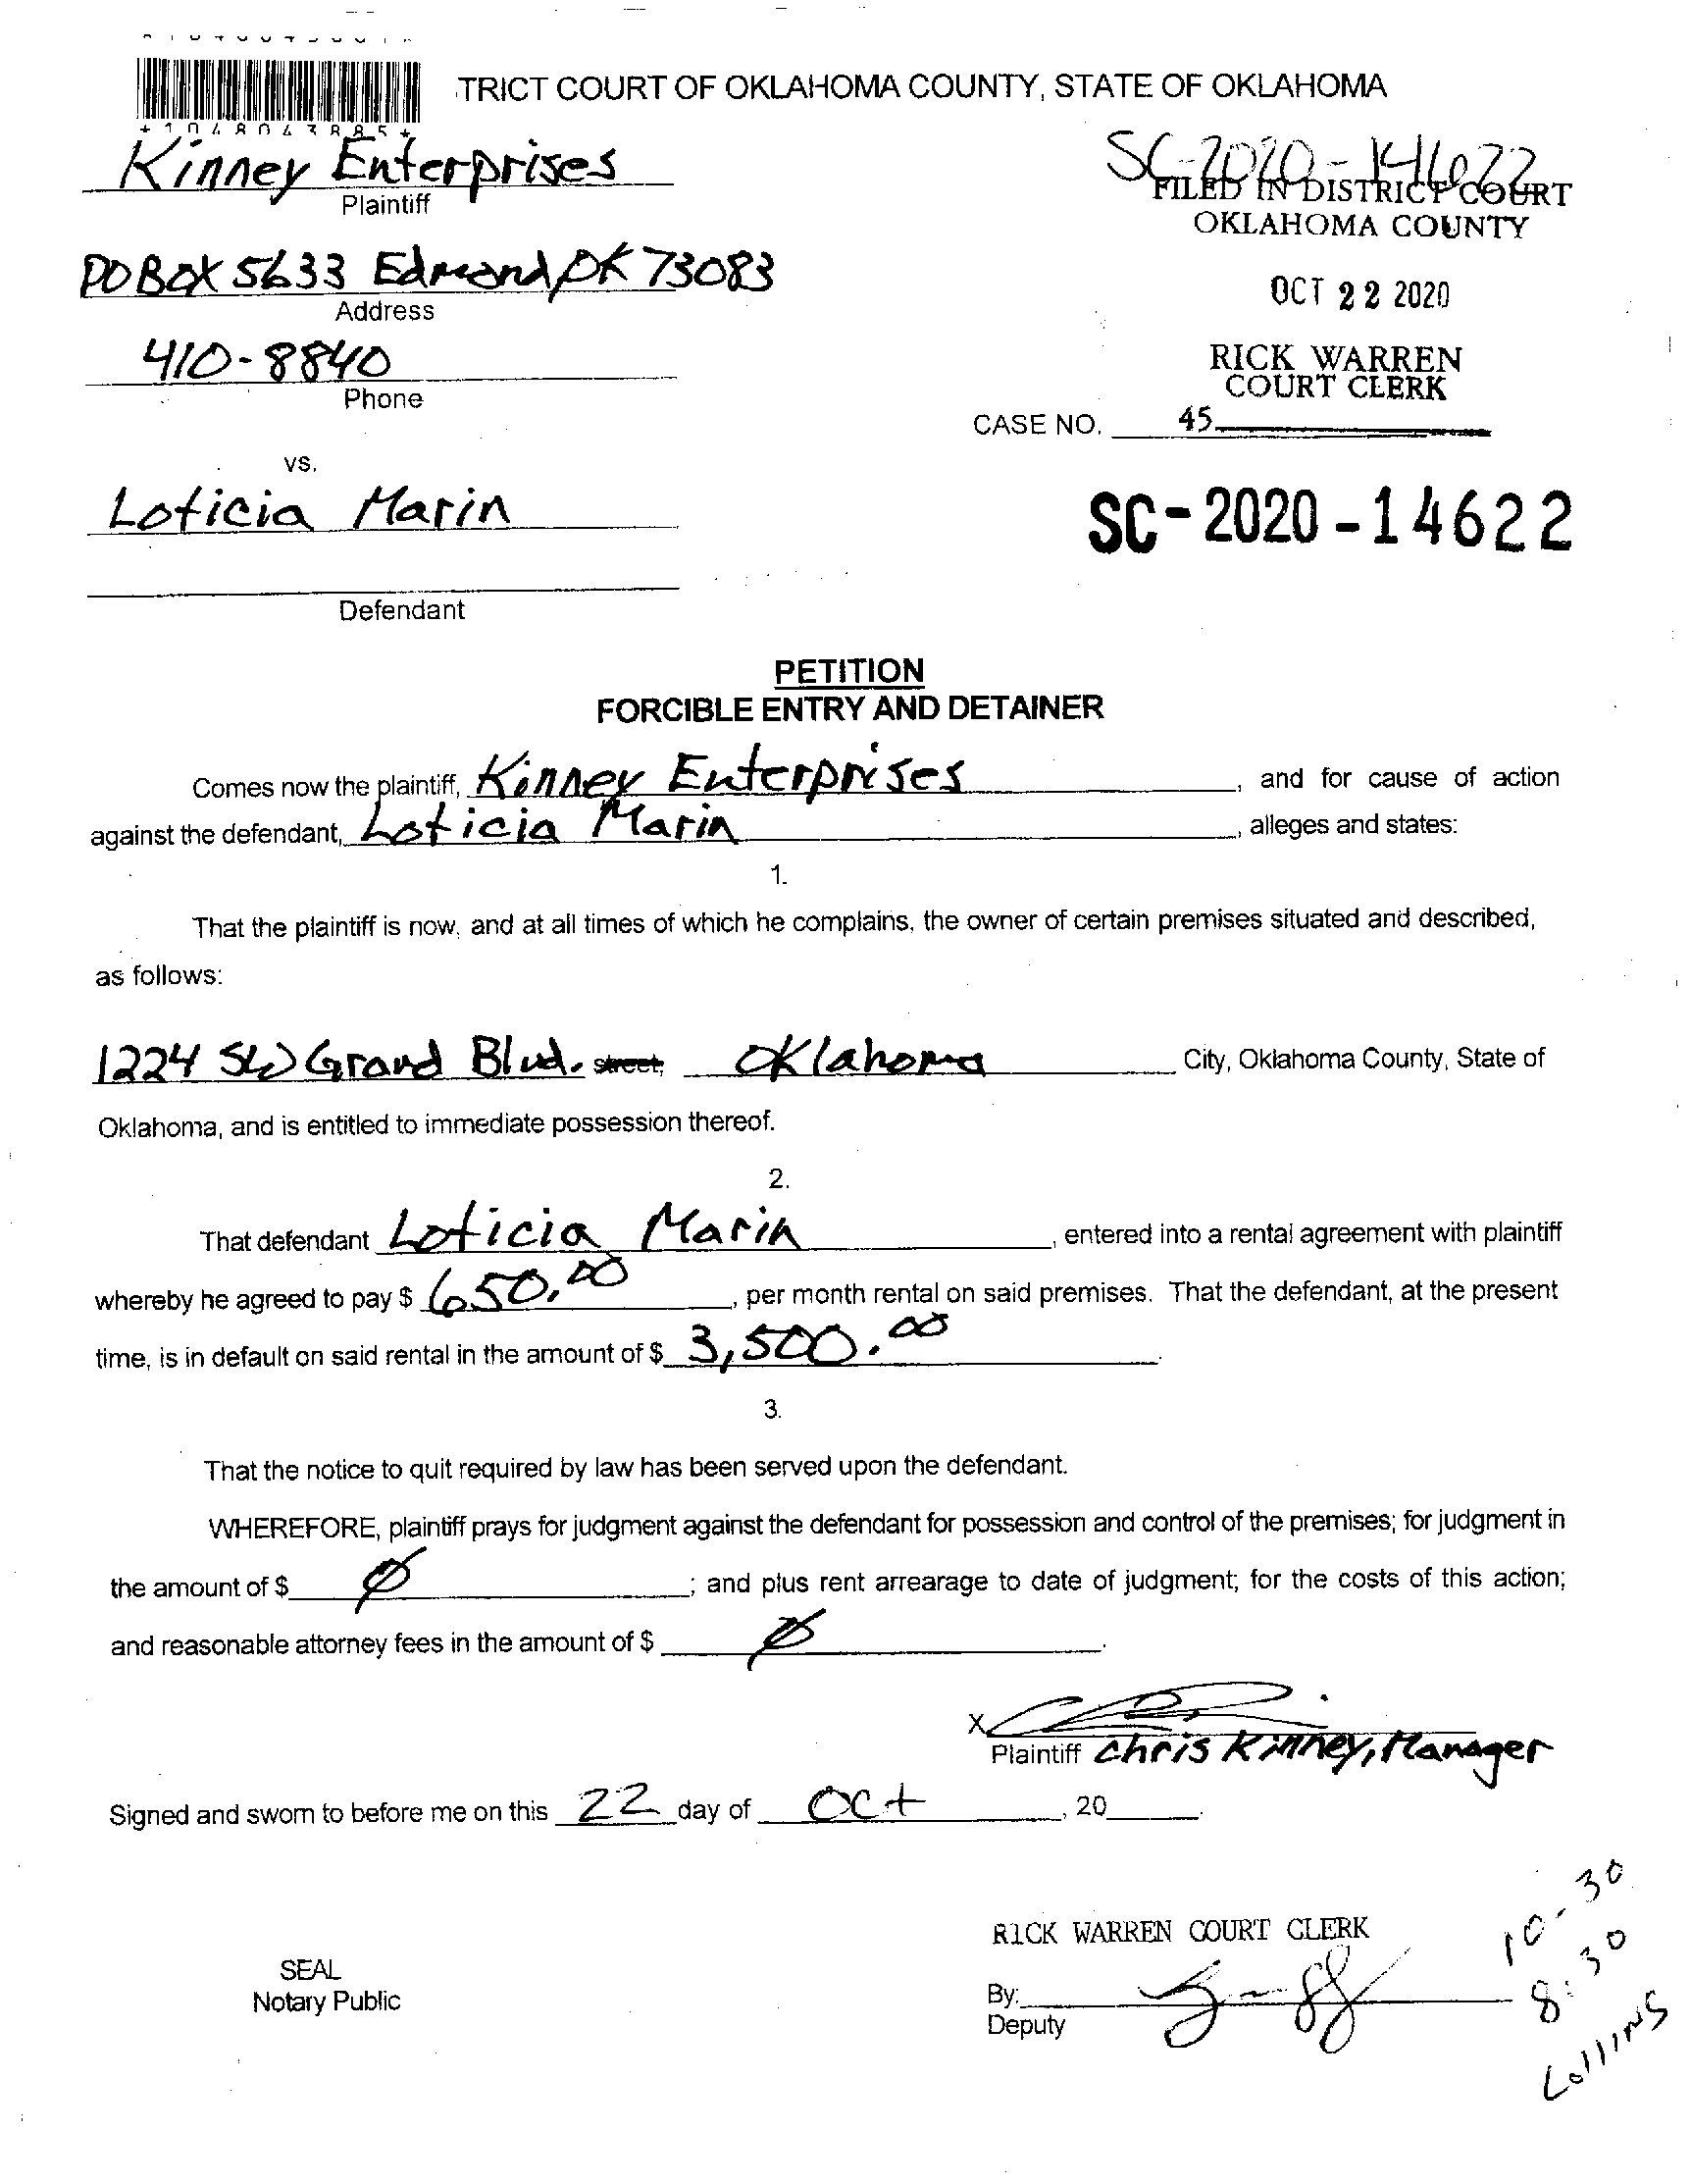 TRICT COURT OF OKLAHOMA COUNTY, STATE OF OKLAHOMA
*1048043885*
Kinney Enterprises
Plaintiff
SC-2020-14622
FILED IN DISTRICT COURT
OKLAHOMA COUNTY
PO BOX 5633 Edmond, OK 73083
Address
OCT 22 2020
410-8840
Phone
RICK WARREN
COURT CLERK
CASE NO. 45
vs.
Loticia Marin
SC-2020-14622
Defendant
PETITION
FORCIBLE ENTRY AND DETAINER
Comes now the plaintiff, Kinney Enterprises, and for cause of action
against the defendant, Loticia Marin, alleges and states:
1.
That the plaintiff is now, and at all times of which he complains, the owner of certain premises situated and described,
as follows:
1224 SW Grand Blvd. street, Oklahoma City, Oklahoma County, State of
Oklahoma, and is entitled to immediate possession thereof.
2.
That defendant Loticia Marin, entered into a rental agreement with plaintiff
whereby he agreed to pay $ 650.00, per month rental on said premises. That the defendant, at the present
time, is in default on said rental in the amount of $ 3,500.00.
3.
That the notice to quit required by law has been served upon the defendant.
WHEREFORE, plaintiff prays for judgment against the defendant for possession and control of the premises; for judgment in
the amount of $ Ø; and plus rent arrearage to date of judgment; for the costs of this action;
and reasonable attorney fees in the amount of $ Ø.
X
Plaintiff Chris Kinney, Manager
Signed and sworn to before me on this 22 day of Oct, 20 .
RICK WARREN COURT CLERK
SEAL
Notary Public
By:
Deputy
10-30
8:30
Collins